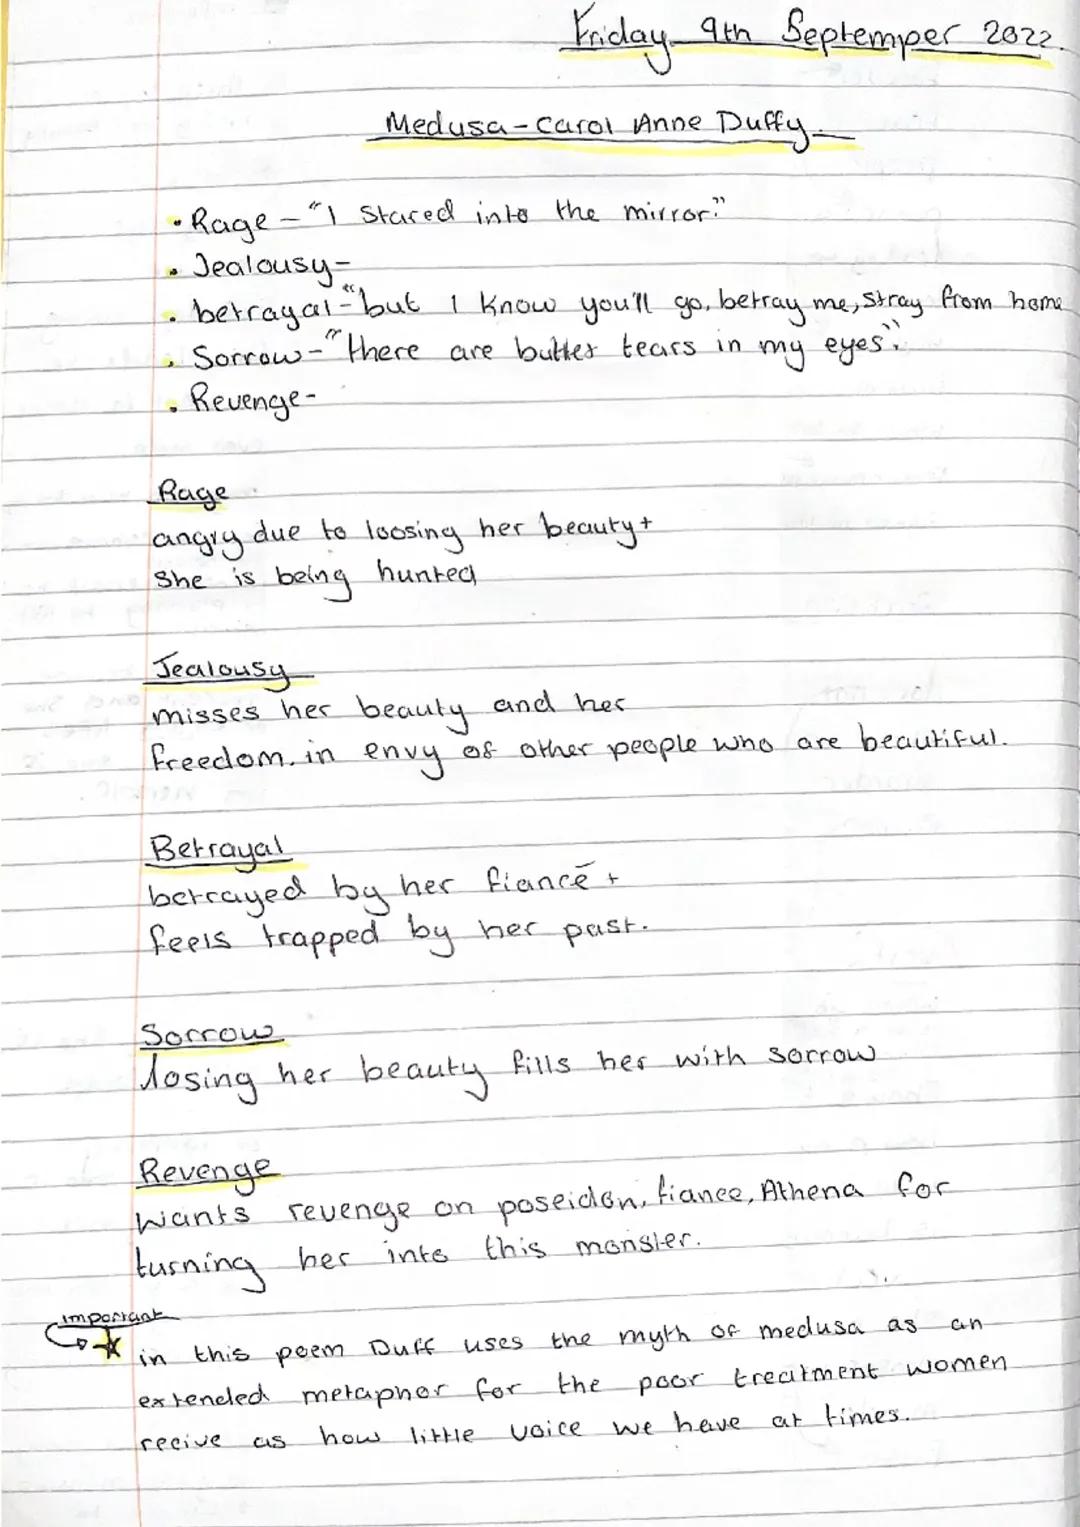 Friday 9th Septemper 2022
Medusa - Carol Anne Duffy
• Rage - "I stared into the mirror."
• Jealousy -
• betrayal - "but I know you'll go, betray me, stray from home
• Sorrow - "there are bullet tears in my eyes."
• Revenge -
Rage
angry due to loosing her beauty +
She is being hunted
Jealousy
misses her beauty and her
freedom. in envy of other people who are beautiful.
Betrayal
betrayed by her fiancé +
feels trapped by her past.
Sorrow
losing her beauty fills her with sorrow
Revenge
wants revenge on poseidon, fiance, Athena for
turning her into this monster.
important
in this poem Duff uses the myth of medusa as an
extended metaphor for the poor treatment women
recive as how little voice we have at times.